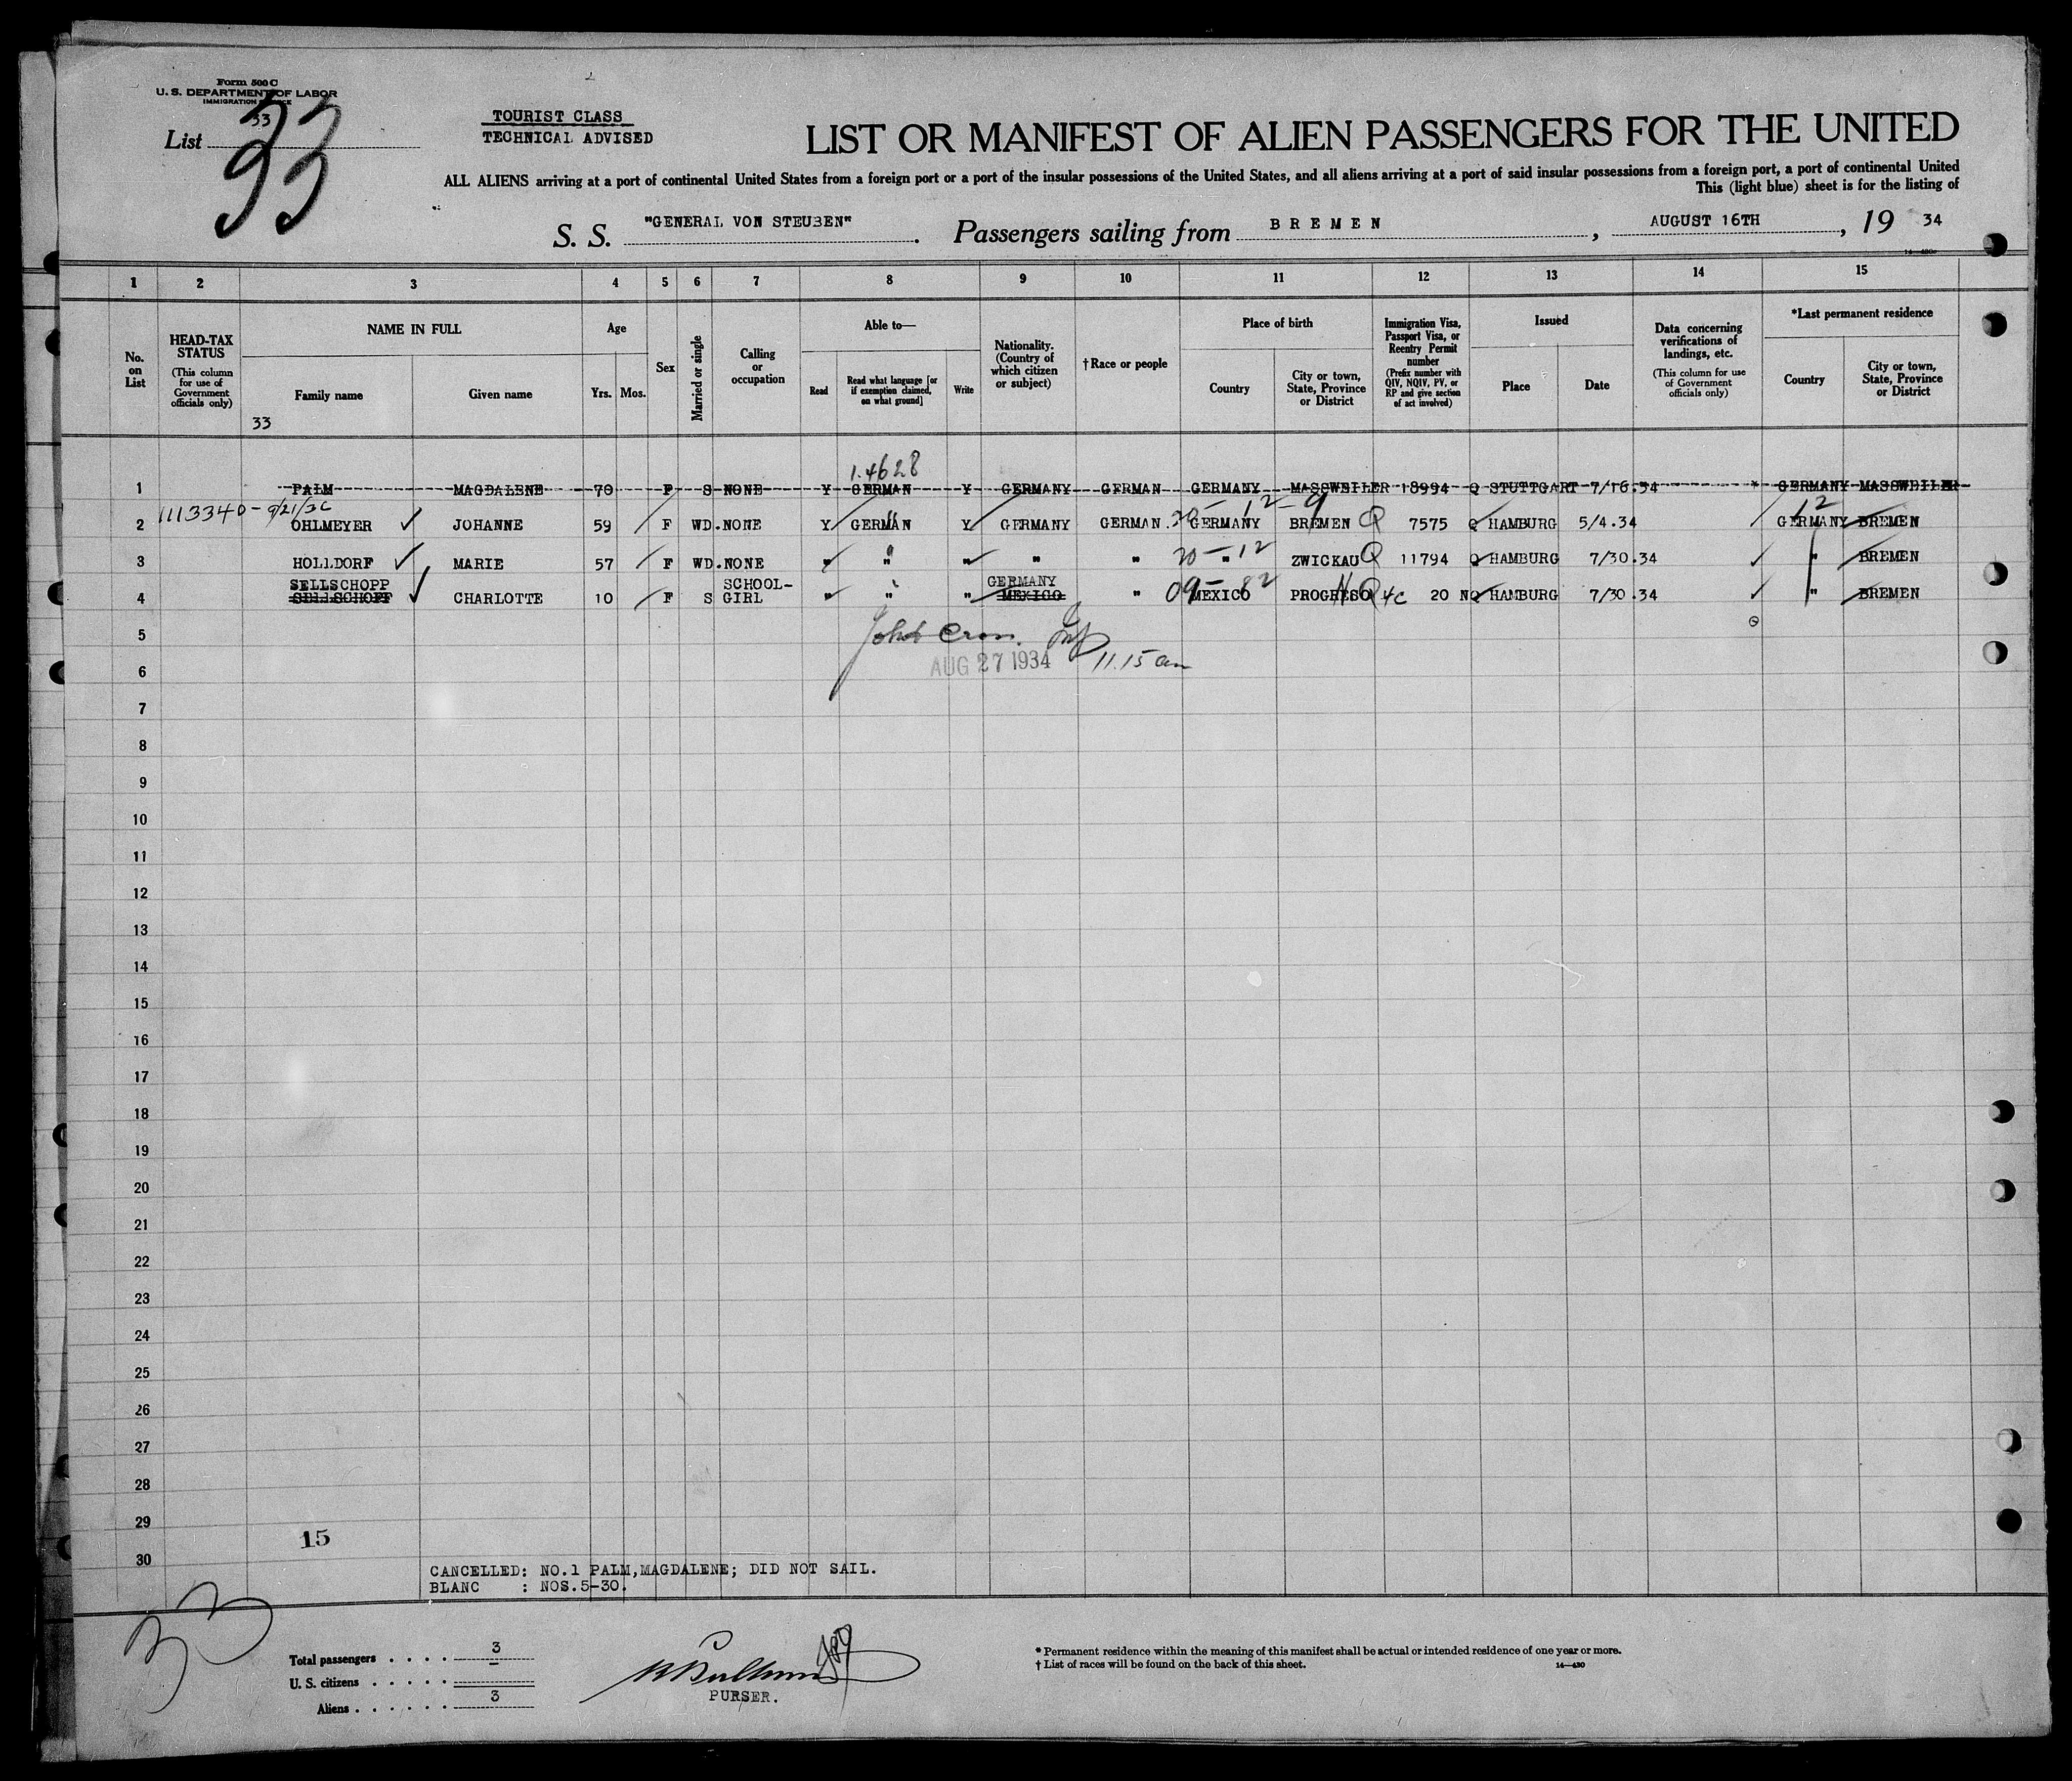 Form 500 C
U. S. DEPARTMENT OF LABOR
IMMIGRATION
List 33
33
TOURIST CLASS
TECHNICAL ADVISED
LIST OR MANIFEST OF ALIEN PASSENGERS FOR THE UNITED
ALL ALIENS arriving at a port of continental United States from a foreign port or a port of the insular possessions of the United States, and all aliens arriving at a port of said insular possessions from a foreign port, a port of continental United
This (light blue) sheet is for the listing of
S. S. "GENERAL VON STEUBEN". Passengers sailing from BREMEN, AUGUST 16TH, 19 34
1 2 3 4 5 6 7 8 9 10 11 12 13 14 15
No. on List
HEAD-TAX STATUS
(This column for use of Government officials only)
NAME IN FULL
Family name
Given name
33
Age
Yrs.
Mos.
Sex
Married or single
Calling or occupation
Able to—
Read
Read what language [or if exemption claimed, on what ground]
Write
Nationality. (Country of which citizen or subject)
†Race or people
Place of birth
Country
City or town, State, Province or District
Immigration Visa, Passport Visa, or Reentry Permit number
(Prefix number with QIV, NQIV, PV, or RP and give section of act involved)
Issued
Place
Date
Data concerning verifications of landings, etc.
(This column for use of Government officials only)
*Last permanent residence
Country
City or town, State, Province or District
1.4628
1 PALM MAGDALENE 70 F S NONE Y GERMAN Y GERMANY GERMAN GERMANY MASSWEILER 18994 Q STUTTGART 7/16.34 * GERMANY MASSWEILER
1113340 - 9/21/36 20 - 12 - 9 12
2 OHLMEYER JOHANNE 59 F WD. NONE Y GERMAN Y GERMANY GERMAN. GERMANY BREMEN Q 7575 Q HAMBURG 5/4.34 GERMANY BREMEN
20 - 12
3 HOLLDORF MARIE 57 F WD. NONE " " " " " " ZWICKAU Q 11794 Q HAMBURG 7/30.34 " BREMEN
SELLSCHOPP SCHOOL- GERMANY
09 - 82
4 SELLSCHOPF CHARLOTTE 10 F S GIRL " " " MEXICO " MEXICO PROGRESO NQ 4c 20 NQ HAMBURG 7/30.34 " BREMEN
5
AUG 27 1934 11.15 am
6
7
8
9
10
11
12
13
14
15
16
17
18
19
20
21
22
23
24
25
26
27
28
29
15
30
CANCELLED: NO.1 PALM,MAGDALENE; DID NOT SAIL.
BLANC : NOS.5-30.
33
Total passengers . . . . 3
U. S. citizens . . . . . —
Aliens . . . . . . 3
PURSER.
* Permanent residence within the meaning of this manifest shall be actual or intended residence of one year or more.
† List of races will be found on the back of this sheet.
14—430